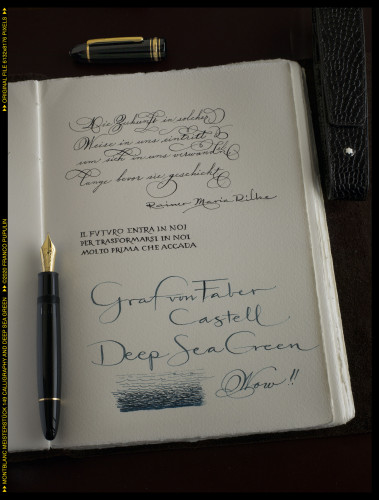 Die Zukunft in solcher
Weise in uns eintritt
um sich in uns verwandeln
lange bevor sie geschicht
Rainer Maria Rilke
IL FVTVRO ENTRA IN NOI
PER TRASFORMARSI IN NOI
MOLTO PRIMA CHE ACCADA
Graf von Faber
Castell
Deep Sea Green
Wow!!
MONTBLANC MEISTERSTÜCK 149 CALLIGRAPHY AND DEEP SEA GREEN
©2020 FRANCO PUPULIN
ORIGINAL FILE 6132x8176 PIXELS